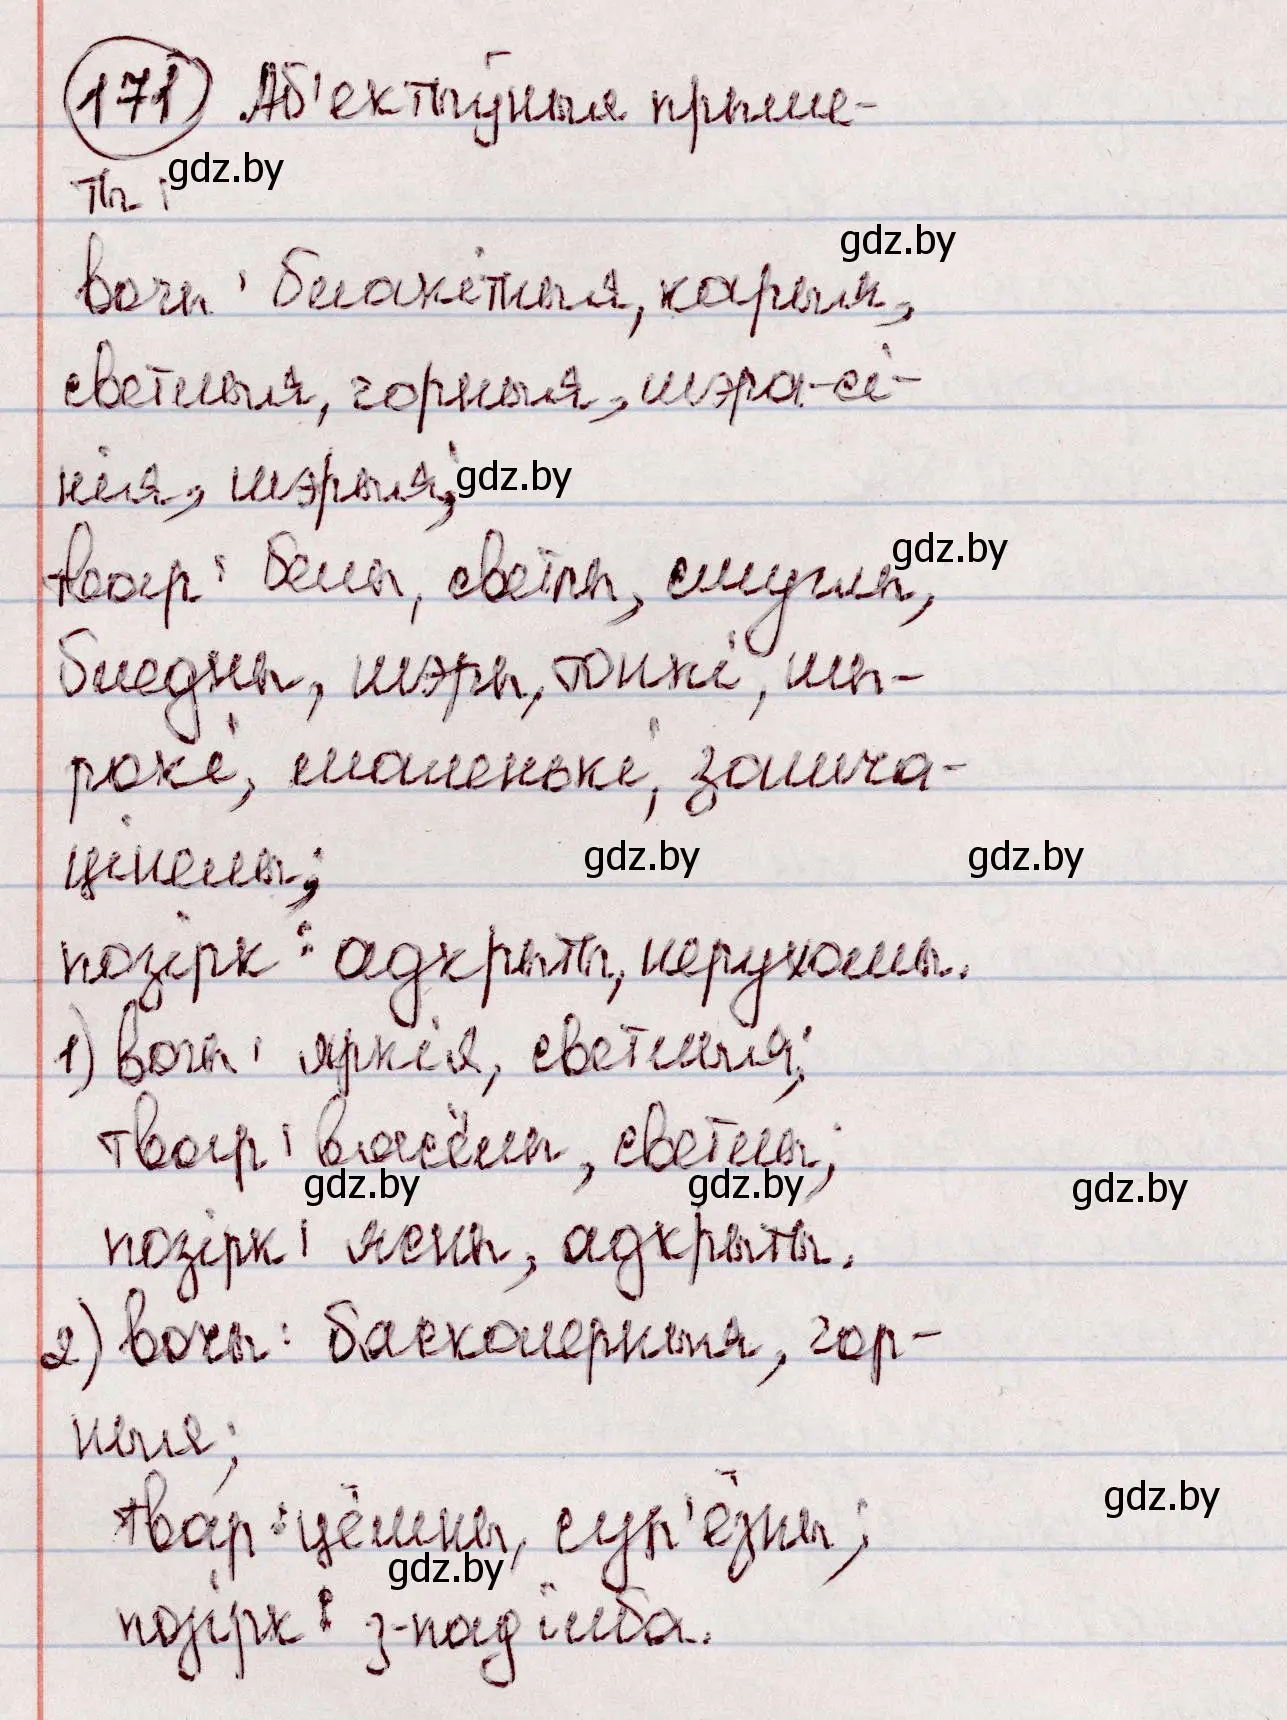 171 Аб'ектыўныя прыме-
ты:
gdz.by
вочы: блакітныя, карыя,
gdz.by
светлыя, чорныя, шэра-сі-
нія, шэрыя;
gdz.by
твар: белы, светлы, смуглы,
gdz.by
бледны, шэры, тонкі, шы-
рокі, маленькі, загарэ-
gdz.by
gdz.by
позірк: адкрыты, нерухомы.
1) вочы: яркія, светлыя;
твар: вясёлы, светлы;
gdz.by
gdz.by
gdz.by
позірк: ясны, адкрыты.
2) вочы: бескалерныя, чор-
ныя;
gdz.by
твар: цёмны, сур'ёзны;
gdz.by
позірк: з-пад ілба.